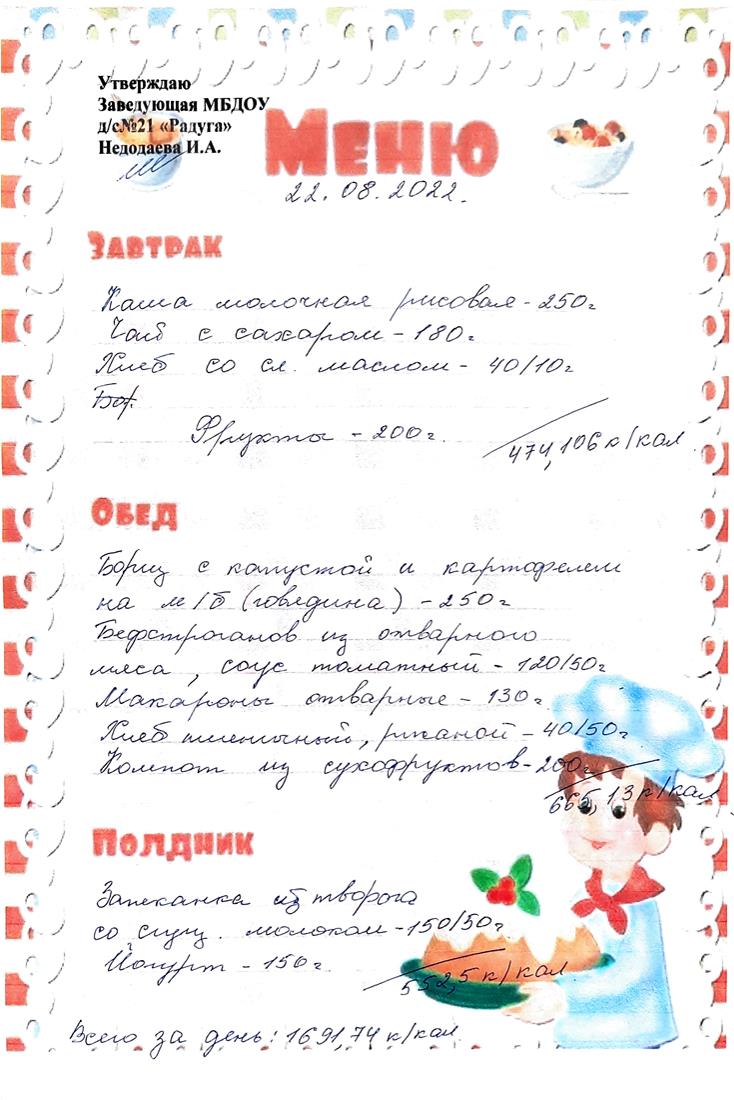 Утверждаю
Заведующая МБДОУ
д/с№21 «Радуга»
Недодаева И.А.
Меню
22.08.2022.
Завтрак
Каша молочная рисовая - 250г
Чай с сахаром - 180г
Хлеб со сл. маслом - 40/10г
Фрукты - 200г.
474,106 к/кал
Обед
Борщ с капустой и картофелем
на м/б (говядина) - 250г
Бефстроганов из отварного
мяса, соус томатный - 120/50г
Макароны отварные - 130г.
Хлеб пшеничный, ржаной - 40/50г
Компот из сухофруктов - 200г
665,13 к/кал
Полдник
Запеканка из творога
со сгущ. молоком - 150/50г
Йогурт - 150г.
552,5 к/кал
Всего за день: 1691,74 к/кал